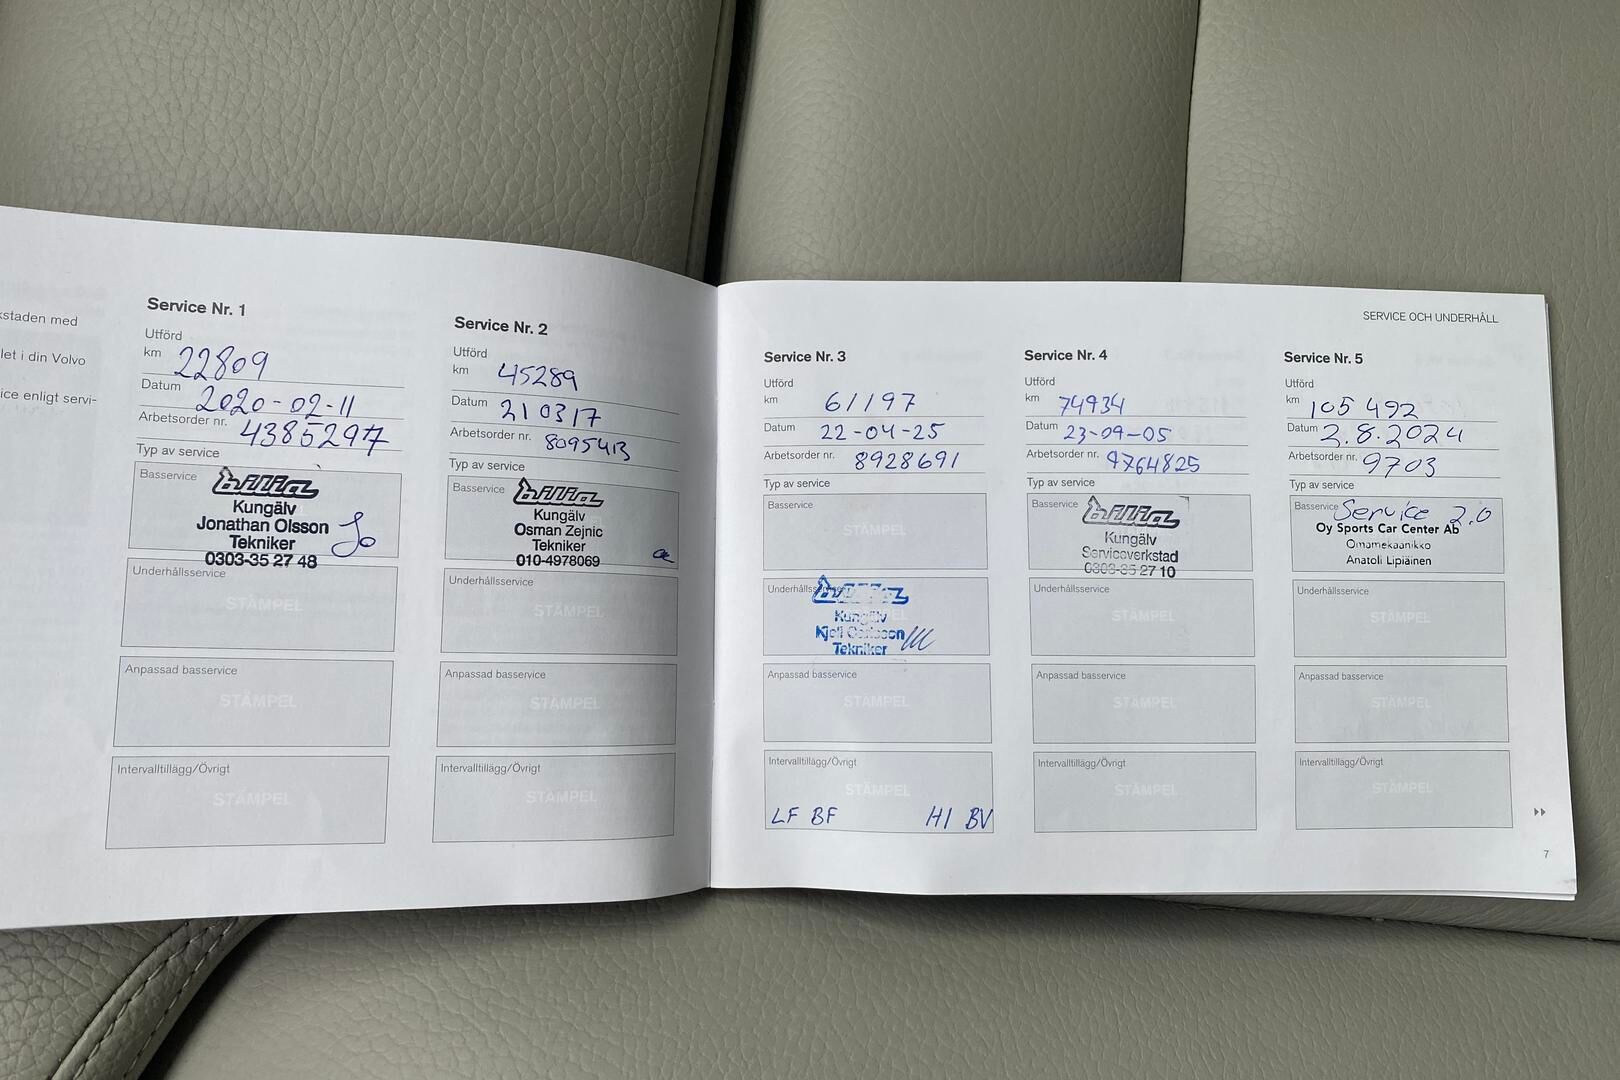 kstaden med
let i din Volvo
ice enligt servi-
Service Nr. 1
Utförd
km 22809
Datum 2020-02-11
Arbetsorder nr. 4385297
Typ av service
Basservice
bilia
Kungälv
Jonathan Olsson
Tekniker
0303-35 27 48
Underhållsservice
STÄMPEL
Anpassad basservice
STÄMPEL
Intervalltillägg/Övrigt
STÄMPEL
Service Nr. 2
Utförd
km 45289
Datum 210317
Arbetsorder nr. 8095413
Typ av service
Basservice
bilia
Kungälv
Osman Zejnic
Tekniker
010-4978069
Underhållsservice
STÄMPEL
Anpassad basservice
STÄMPEL
Intervalltillägg/Övrigt
STÄMPEL
SERVICE OCH UNDERHÅLL
Service Nr. 3
Utförd
km 61197
Datum 22-04-25
Arbetsorder nr. 8928691
Typ av service
Basservice
STÄMPEL
Underhållsservice
bilia
Kungälv
Kjell
Tekniker
Anpassad basservice
STÄMPEL
Intervalltillägg/Övrigt
STÄMPEL
LF BF HI BV
Service Nr. 4
Utförd
km 74934
Datum 23-09-05
Arbetsorder nr. 9764825
Typ av service
Basservice
bilia
Kungälv
Serviceverkstad
0303-35 27 10
Underhållsservice
STÄMPEL
Anpassad basservice
STÄMPEL
Intervalltillägg/Övrigt
STÄMPEL
Service Nr. 5
Utförd
km 105 492
Datum 2.8.2024
Arbetsorder nr. 9703
Typ av service
Basservice Service 2.0
Oy Sports Car Center Ab
Omamekaanikko
Anatoli Lipiäinen
Underhållsservice
STÄMPEL
Anpassad basservice
STÄMPEL
Intervalltillägg/Övrigt
STÄMPEL
7